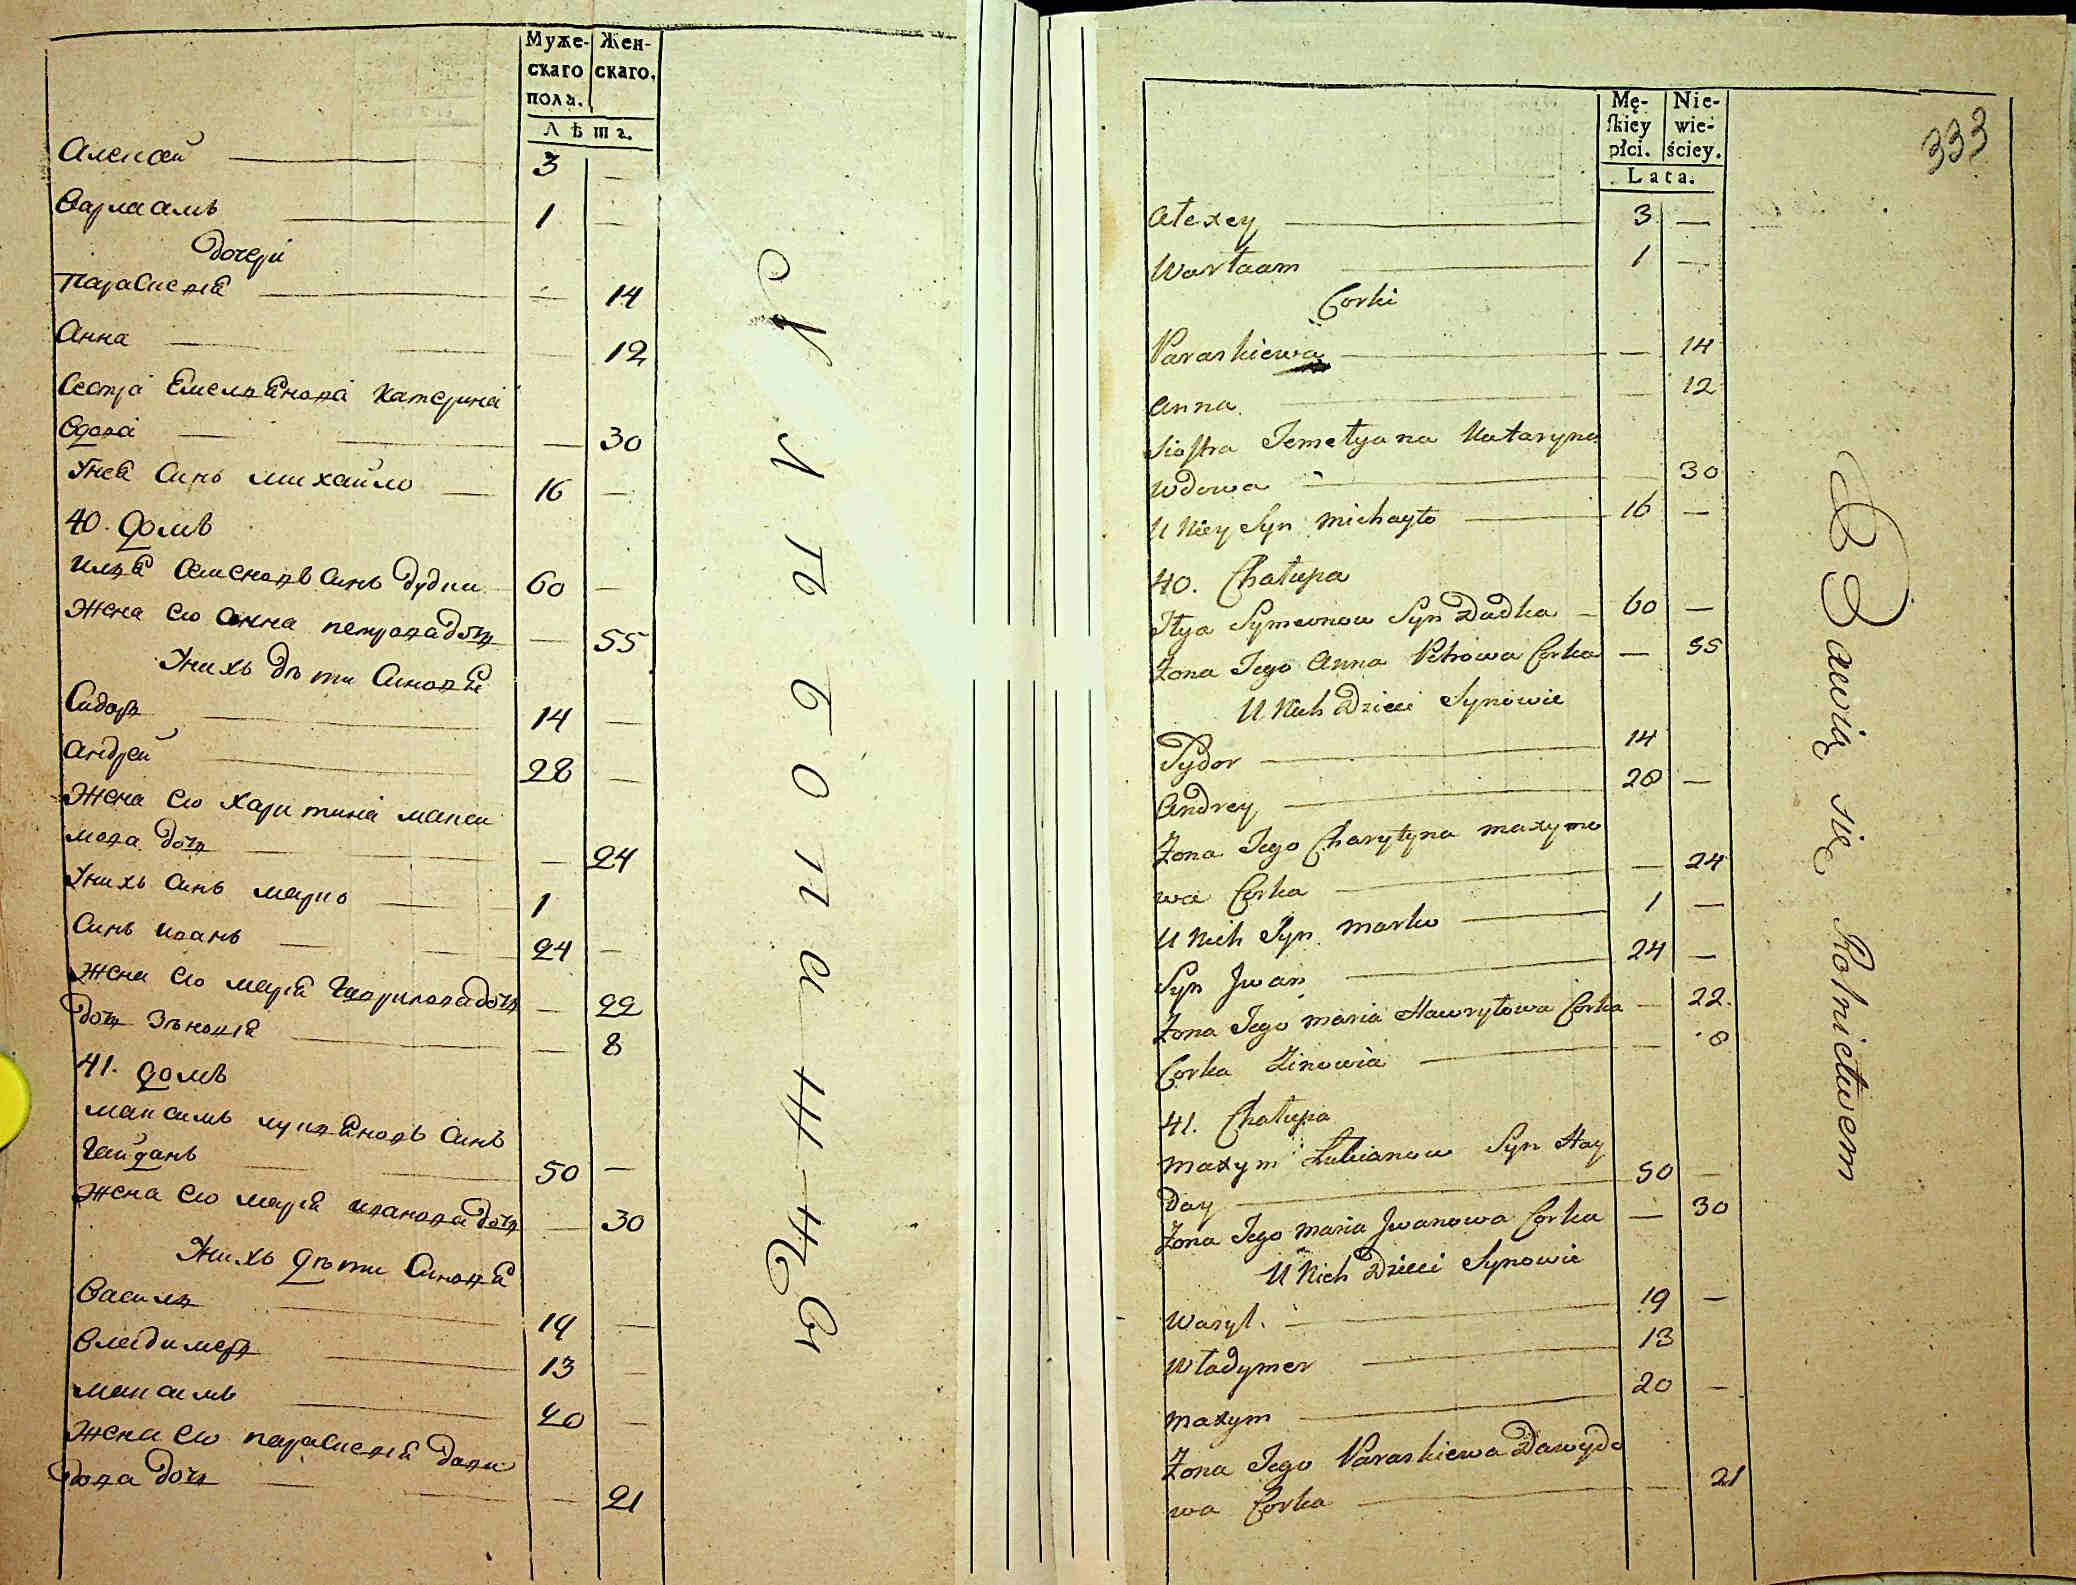 Муже- Жен-
скаго скаго.
пола.
Лѣтъ.
Алексѣй — 3 —
Варлаамъ — 1 —
дочери
Параскевіа — - 14
Анна — — 12
Сестра Емельянова Катерина
вдова — — 30
Унея Синъ михайло — 16 —
40. домъ
илья Семеновъ Синъ дудка 60 —
Жена его Анна петрова дочь — 55
Унихъ дѣти Синовя
Сидоръ — 14 —
Андрей — 28 —
Жена его Харитина макси
мова дочь — — 24
Унихъ Синъ марко — 1
Синъ иванъ — 24 —
Жена его маріа Гаврилова дочь — 22
дочь Зѣновіа — — 8
41. домъ
максимъ лукяновъ Синъ
Гайданъ — 50 —
Жена его маріа иванова дочь — 30
Унихъ дѣти Синовя
Василь — 19 —
Владимеръ — 13 —
максимъ — 20 —
Жена его параскевіа Дави
дова дочь — — 21
Хлѣбопашцы
Mę- Nie-
skiey wie-
płci. ściey.
Lata.
333
Alexey — 3 —
Warłaam — 1 —
Corki
Paraskiewa — — 14
Anna — — 12
Siostra Jemełyana Kataryna
wdowa — — 30
U Niey Syn Michayło — 16 —
40. Chałupa
Iłya Symeonow Syn Dudka — 60 —
Żona Jego Anna Petrowa Corka — 55
U Nich Dzieci Synowie
Sydor — 14
Andrey — 28 —
Żona Jego Charytyna maxymo
wa Corka — — 24
U Nich Syn Marko — 1 —
Syn Jwan — 24 —
Żona Jego Maria Hawryłowa Corka — 22.
Corka Zinowia — — 8
41. Chałupa
Maxym Łukianow Syn Hay
Day — 50 —
Żona Jego Maria Jwanowa Corka — 30
U Nich Dzieci Synowie
Wasyl. — 19 —
Władymer — 13
Maxym — 20 —
Żona Jego Paraskiewa Dawydo
wa Corka — — 21
Bawią się Rolnictwem